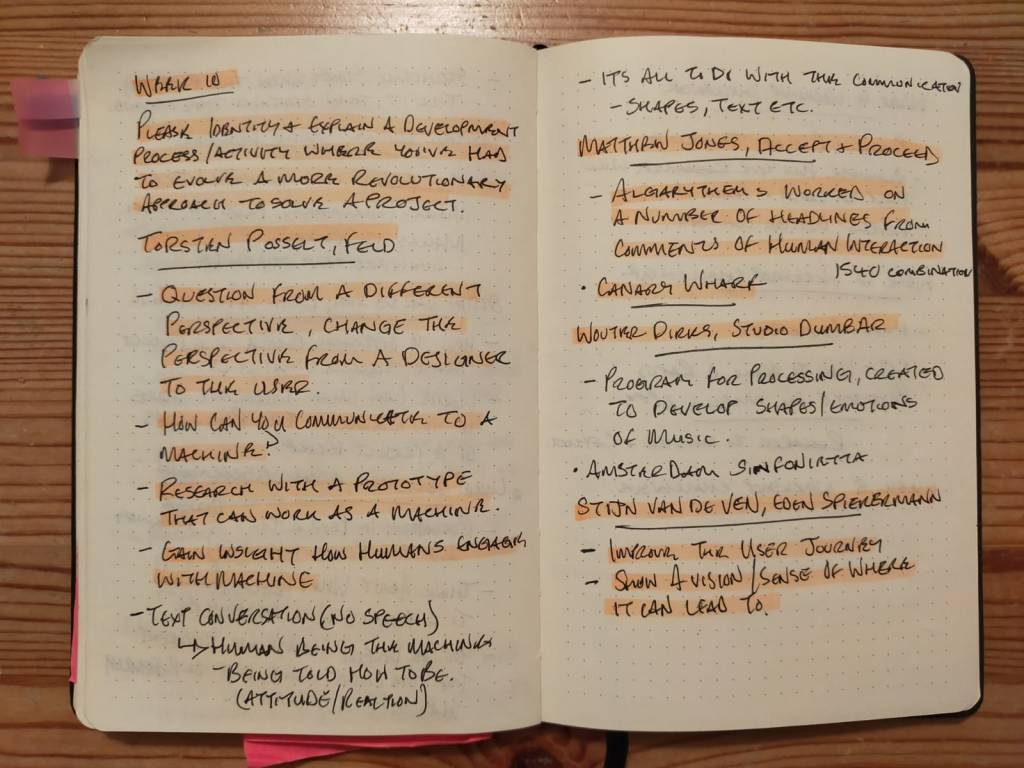 WEEK 10
PLEASE IDENTITY & EXPLAIN A DEVELOPMENT
PROCESS/ACTIVITY WHERE YOU'VE HAD
TO EVOLVE A MORE REVOLUTIONARY
APPROACH TO SOLVE A PROJECT.
TORSTEN POSSELT, FELD
- QUESTION FROM A DIFFERENT
PERSPECTIVE, CHANGE THE
PERSPECTIVE FROM A DESIGNER
TO THE USER.
- HOW CAN YOU COMMUNICATE TO A
MACHINE?
- RESEARCH WITH A PROTOTYPE
THAT CAN WORK AS A MACHINE.
- GAIN INSIGHT HOW HUMANS ENGAGE
WITH MACHINE
- TEXT CONVERSATION (NO SPEECH)
↳ HUMAN BEING THE MACHINE
- BEING TOLD HOW TO BE.
(ATTITUDE/REACTION)
- ITS ALL TO DO WITH THE COMMUNICATION
- SHAPES, TEXT ETC.
MATTHEW JONES, ACCEPT & PROCEED
- ALGARYTHEMS WORKED ON
A NUMBER OF HEADLINES FROM
COMMENTS OF HUMAN INTERACTION
1540 COMBINATION
• CANARY WHARF
WOUTER DIRKS, STUDIO DUMBAR
- PROGRAM FOR PROCESSING, CREATED
TO DEVELOP SHAPES/EMOTIONS
OF MUSIC.
• AMSTERDAM SINFONIETTA
STIJN VAN DE VEN, EDEN SPIEKERMANN
- IMPROVE THE USER JOURNEY
- SHOW A VISION/SENSE OF WHERE
IT CAN LEAD TO.